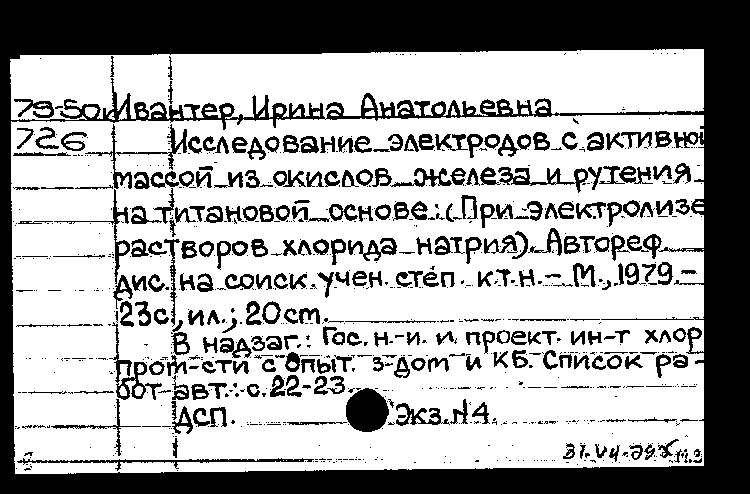 79-50к Ивантер, Ирина Анатольевна
726 Исследование электродов с активной
массой из окислов железа и рутения
на титановой основе: (При электролизе
растворов хлорида натрия). Автореф.
дис. на соиск. учен. степ. к.т.н. – М., 1979. –
23с., ил.; 20 см.
В надзаг.: Гос. н.-и. и проект. ин-т хлор
пром-сти с опыт. з-дом и КБ. Список ра-
бот авт.: с. 22-23.
ДСП. Экз. N4.